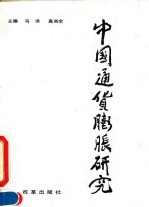 主编 马洪 高尚全
中国通货膨胀研究
改革出版社